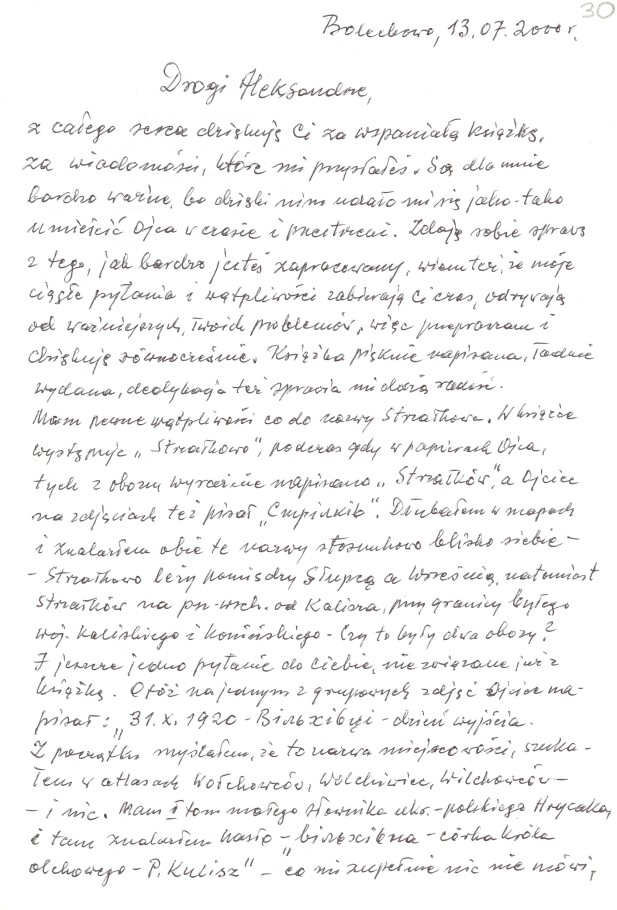 30
Bolechowo, 13.07.2000 r.
Drogi Aleksandrze,
z całego serca dziękuję Ci za wspaniałą książkę,
za wiadomości, które mi przysłałeś. Są dla mnie
bardzo ważne, bo dzięki nim udało mi się jako-tako
umieścić Ojca w czasie i przestrzeni. Zdaję sobie sprawę
z tego, jak bardzo jesteś zapracowany, wiem też, że moje
ciągłe pytania i wątpliwości zabierają Ci czas, odrywają
od ważniejszych, Twoich problemów, więc przepraszam i
dziękuję równocześnie. Książka pięknie napisana, ładnie
wydana, dedykacja też sprawia mi dużą radość.
Mam pewne wątpliwości co do nazwy Strzałkowa. W książce
występuje „Strzałkowo", podczas gdy w papierach Ojca,
tych z obozu wyraźnie napisano „Strzałków", a Ojciec
na zdjęciach też pisał „Стрілків". Dłubałem w mapach
i znalazłem obie te nazwy stosunkowo blisko siebie –
– Strzałkowo leży pomiędzy Słupcą a Wrześnią, natomiast
Strzałków na pn-wsch. od Kalisza, przy granicy byłego
woj. Kaliskiego i Konińskiego – Czy to były dwa obozy?
I jeszcze jedno pytanie do Ciebie, nie związane już z
książką. Otóż na jednym z grupowych zdjęć Ojciec na-
pisał: „31. X. 1920 – – dzień wyjścia.
Z początku myślałem, że to nazwa miejscowości, szuka-
łem w atlasach Wołchowców, Wilchiwiec, Wilchowców –
– i nic. Mam I tom małego słownika ukr.-polskiego Hrycaka,
i tam znalazłem hasło – – córka króla
olchowego – P. Kulisz" – co mi zupełnie nic nie mówi,